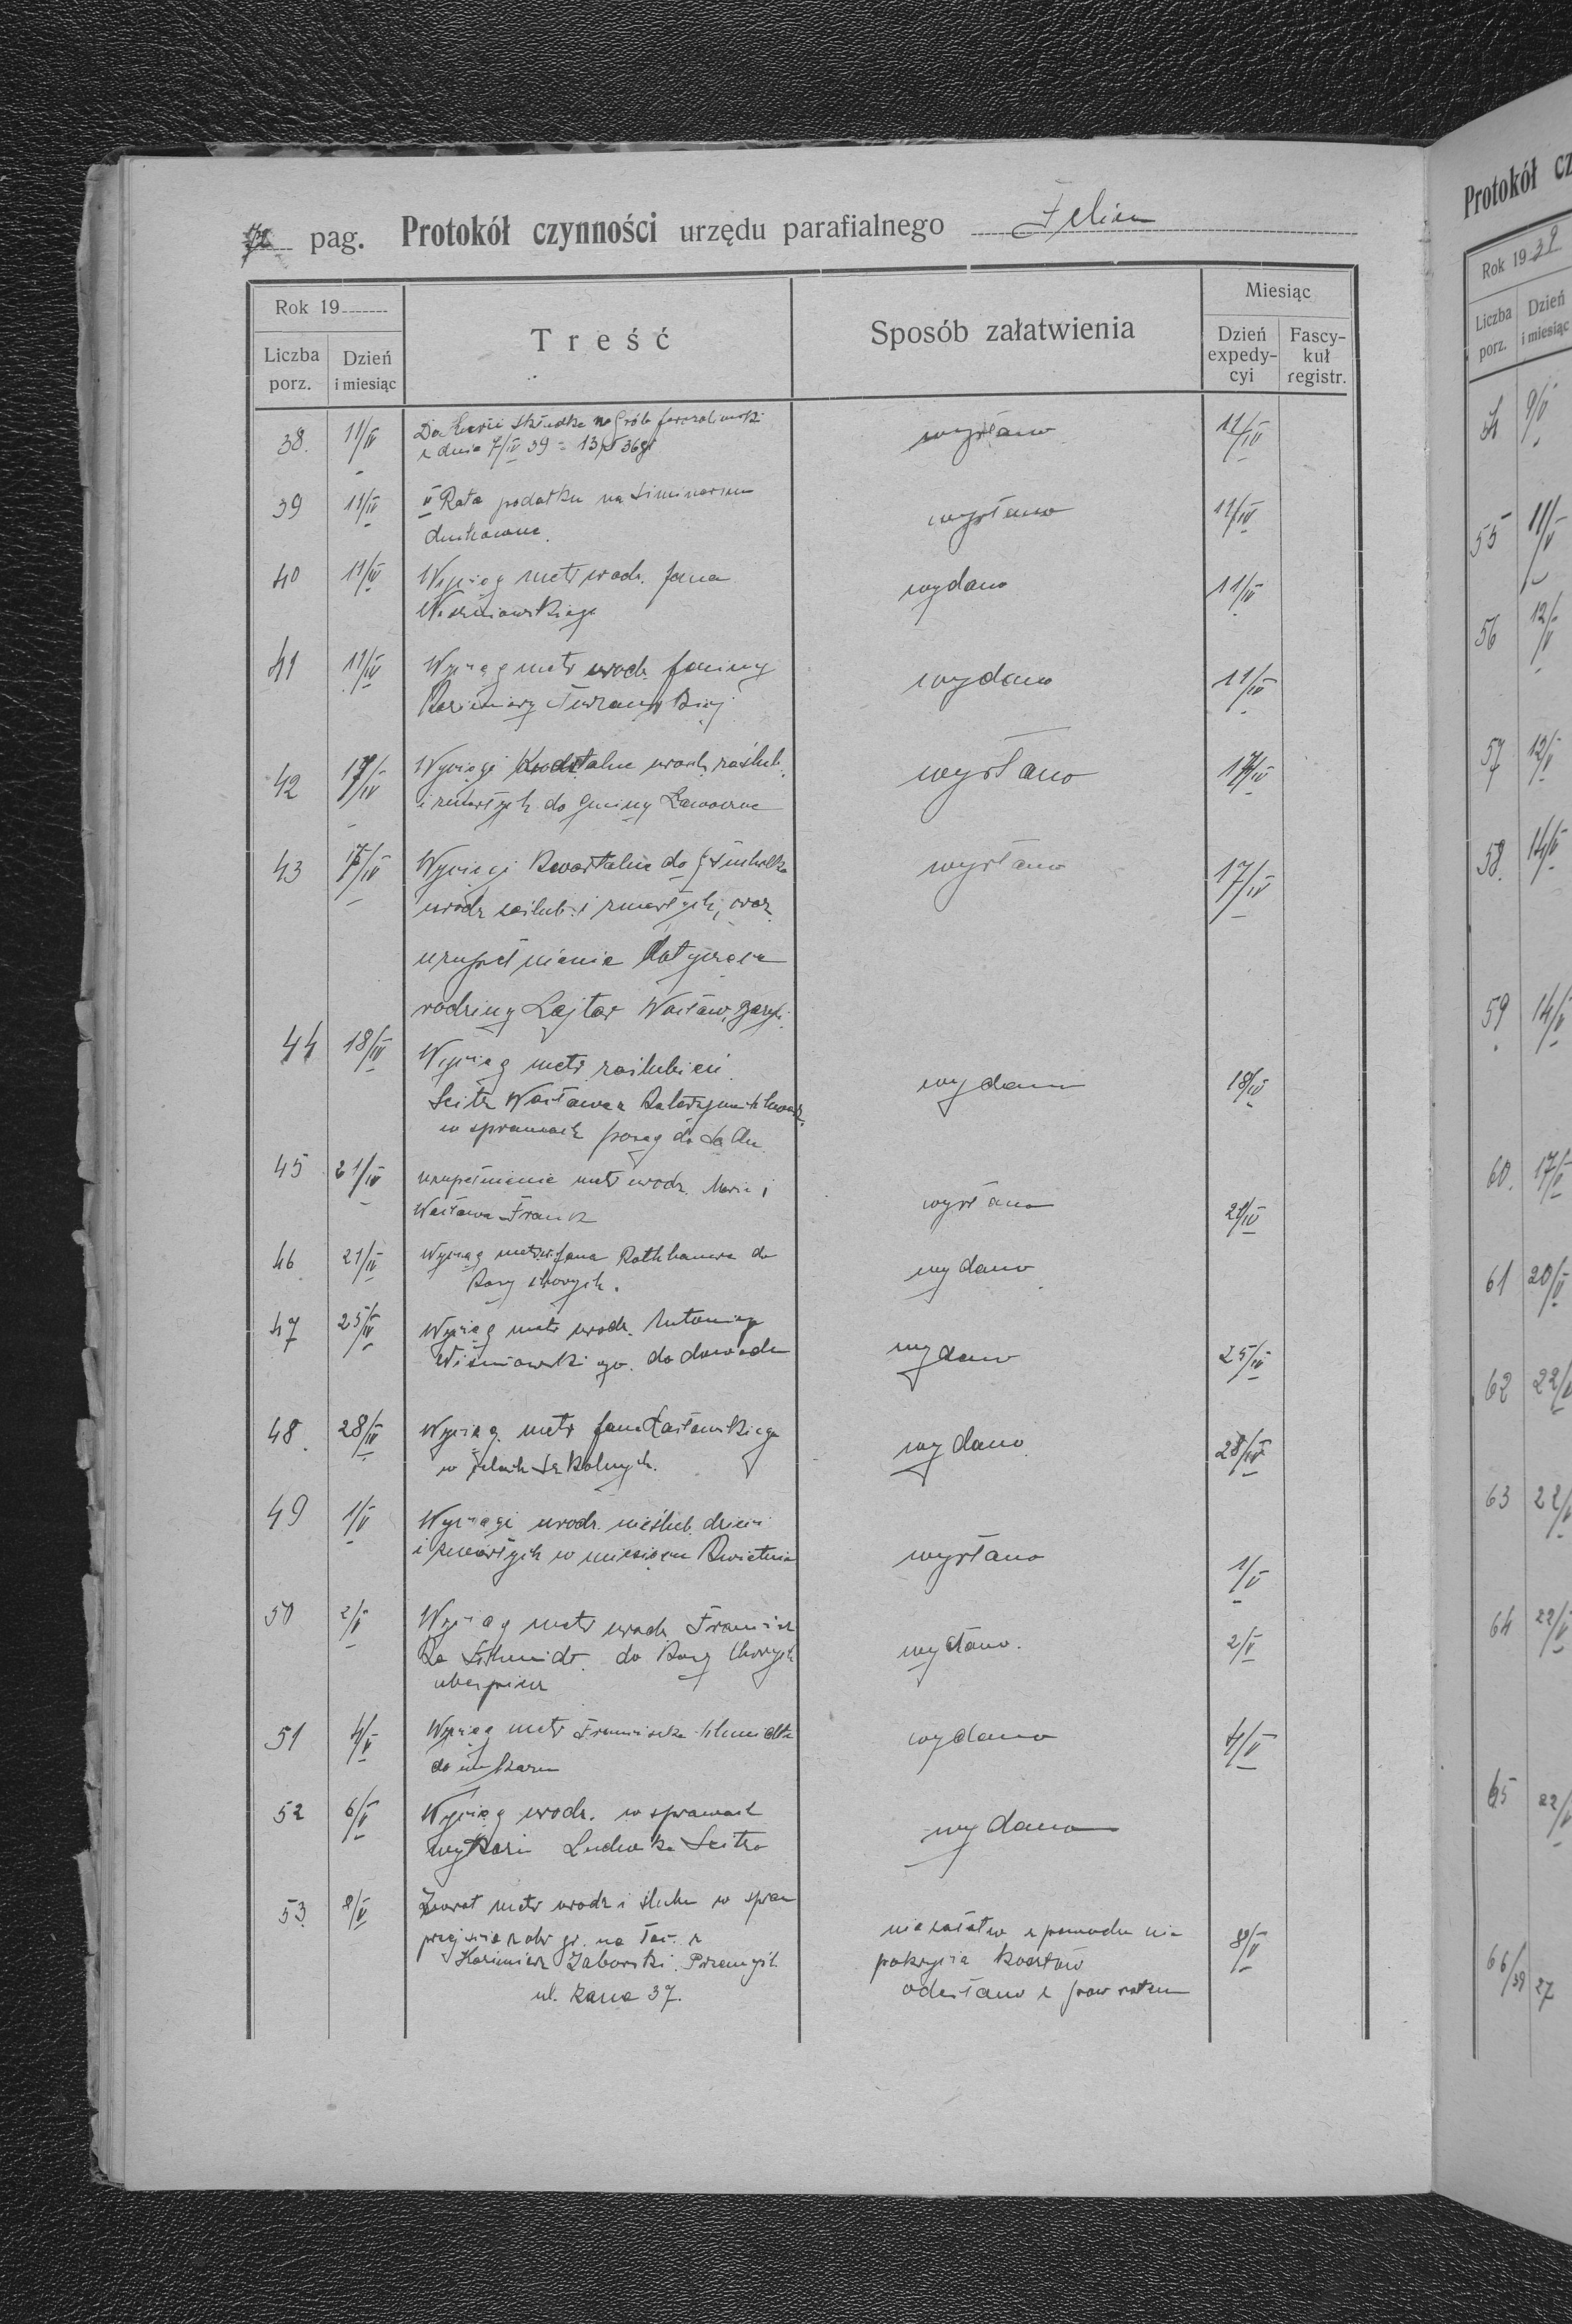 pag. Protokół czynności urzędu parafialnego Felizien
Rok 19
Liczba porz.
Dzień i miesiąc
Treść
Sposób załatwienia
Miesiąc
Dzień expedycyi
Fascykuł registr.
38. 11/IV Do Kurii składka na Grób Jerozolimski wysłano 11/IV
z dnia 7/IV 39 = 13 zł 36 gr
39 11/IV II Rata podatku na Siminarium wysłano 11/IV
duchowne.
40 11/IV Wyciąg metr urodz. Jana wydano 11/IV
Wiśniowskiego
41 11/IV Wyciąg metr urodz. Janiny wydano 11/IV
Kazimiery
42 17/IV Wyciągi Kwartalne urodz, zaślub. wysłano 17/IV
i zmarłych do Gminy Ławoczne
43 17/IV Wyciągi Kwartalne do wysłano 17/IV
urodz zaślub. i zmarłych, oraz
uzupełnienie dotyczące
rodziny Lajtar Wacław,
44 18/IV Wyciąg metr zaślubień wydano 18/IV
Seitz Wacława z
w sprawach
45 21/IV uzupełnienie metr urodz. Marii i wysłano 21/IV
Wacława Frank
46 21/IV Wyciąg metr. Jana do wydano
Kasy chorych.
47 25/IV Wyciąg metr urodz. Antoniego wydano 25/IV
Wiśniowskiego. do dowodu
48. 28/IV Wyciąg metr Jana wydano 28/IV
w celach szkolnych.
49 1/V Wyciągi urodz. nieślub. dzieci wysłano 1/V
i zmarłych w miesiącu Kwietniu
50 2/V Wyciąg metr urodz Francisz wydano. 2/V
ka Schmidt do Kasy Chorych
ubezpiecz
51 4/V Wyciąg metr Franciszka Schmidta wydano 4/V
do
52 6/V Wyciąg urodz. w sprawach wydano
Ludwika Seitza
53. 8/V metr urodz i ślubu w spraw
przejścia z obr gr. na łac. z niezałatw z powodu nie 8/V
Kazimierz Zaborski. Przemyśl pokrycia kosztów
ul. 37. odesłano z powrotem
Protokół cz
Rok 1939
Liczba porz.
Dzień i miesiąc
9/V
55 11/V
56 12/V
57 12/V
58. 14/V
59 14/V
60. 17/V
61 20/V
62 22/V
63 22/V
64 22/V
65 22/V
66/39 27